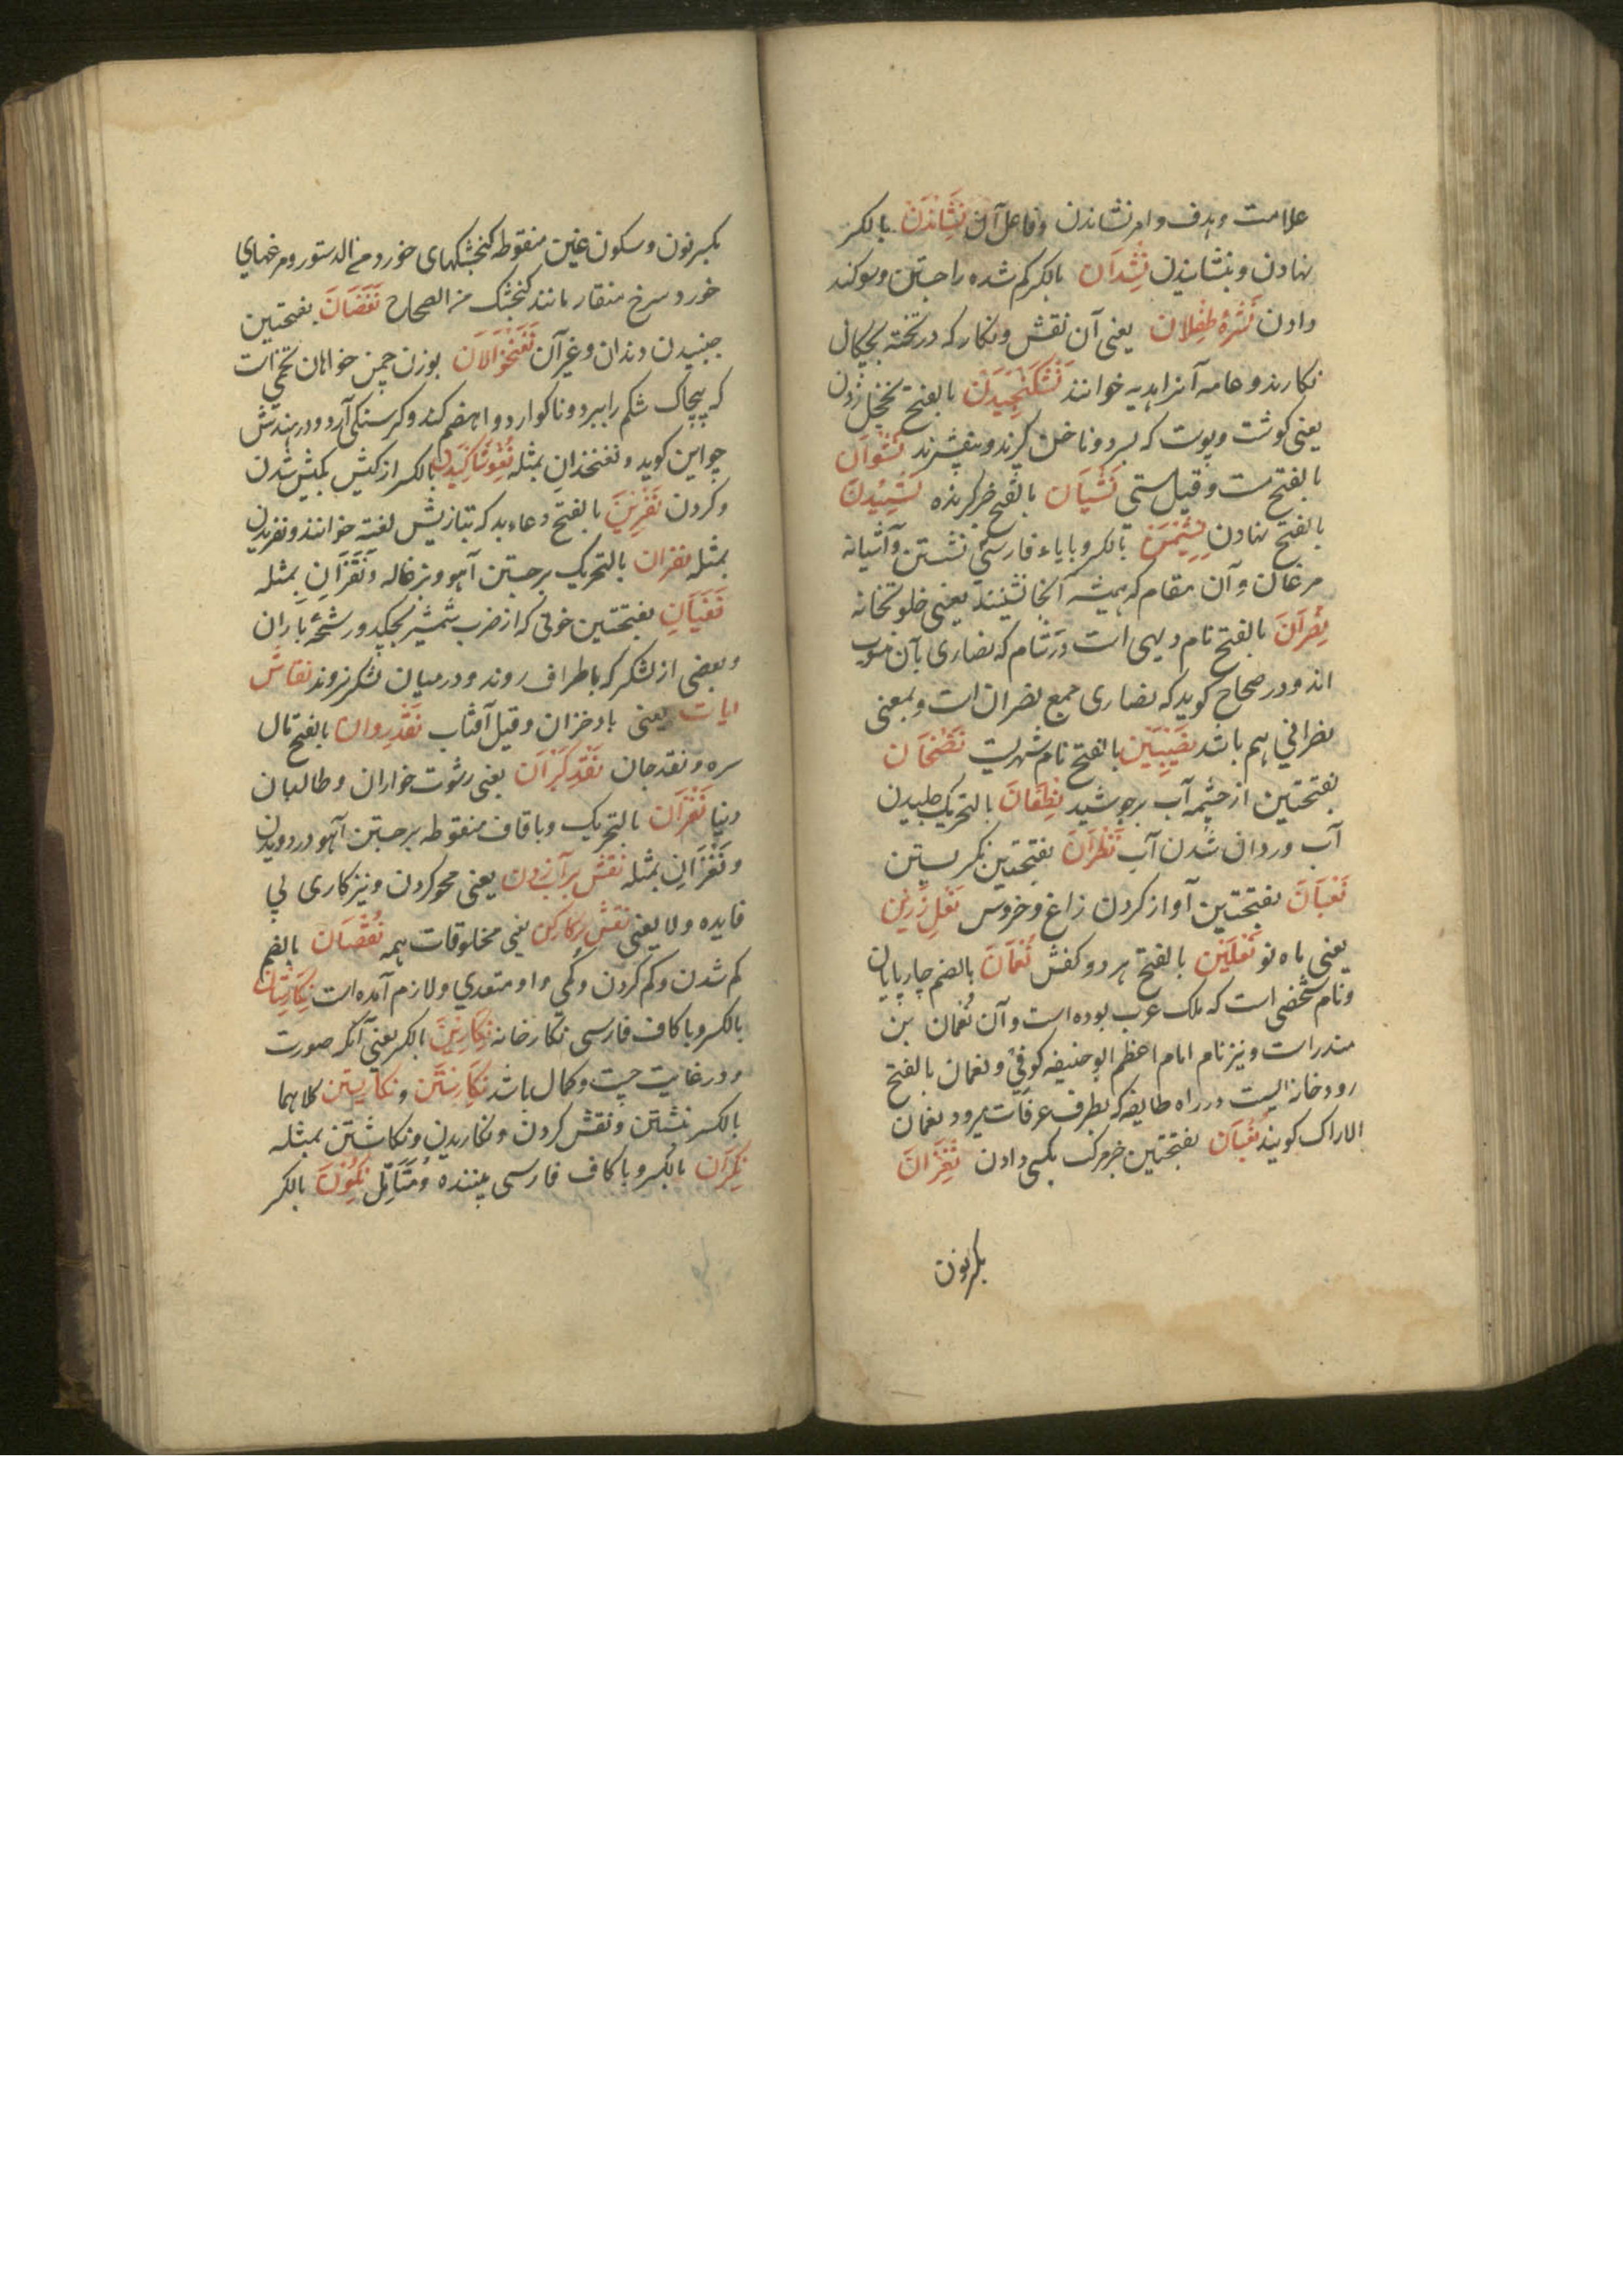 علامت و هدف و امر نشاندن و فاعل آن نِشَانْدَنْ بالکسر
نهادن و بنشانیدن نِشْدَانْ بالکسر کم شده را جستن و سوکند
دادن نُشْرَهٔ طِفْلَان یعنی آن نقش و نکار که در تخته بچکان
نکارند و عامه آنرا هدیه خوانند نَشْکَنْجِیدَنْ بالفتح نخجل زدن
یعنی کوشت و پوست که بسر دو ناخن کیرند و بفشرند نَشْوَانْ
بالفتح مست و قیل مستی نَشْیَانْ بالفتح خبر کیرنده نَشِیْدَنْ
بالفتح نهادن نِشِیْمَنْ بالکسر و بایاء فارسی نشستن و آشیانه
مرغان و آن مقام که همیشه آنجا نشینند یعنی خلوتخانه
نَصْرَانْ بالفتح نام دیهی است در شام که نصاری بآن منسوب
اند و در صحاح کوید که نصاری جمع نصران است و بمعنی
نصرانی هم باشد نَصِیْبِیْن بالفتح نام شهریست نَضَخَان
بفتحتین از چشمه آب برجوشید نَطَفَانْ بالتحریک چلیدن
آب و روان شدن آب نَظَرَانْ بفتحتین نکریستن
نَعَبَانْ بفتحتین آواز کردن زاغ و خروس نَعْلِ زَرِّیْن
یعنی ماه نو نَعْلَیْن بالفتح هر دو کفش نُعْمَانْ بالضم چارپایان
و نام شخصی است که ملک عرب بوده است و آن نُعمان بن
منذر است و نیز نام امام اعظم ابوحنیفه کوفی و نعمان بالفتح
رودخانه ایست در راه طایف که بطرف عرفات میرود نعمان
الاراک کویند نَغَبَانْ بفتحتین خبر مرک بکسی دادن نِغْرَانْ
بکسر نون
بکسر نون و سکون غین منقوطه کنجشکهای خورد من الدستور و مرغهای
خورد سرخ منقار مانند کنجشک من الصحاح نَغَضَانْ بفتحتین
جنبیدن دندان و غیر آن نَغَنْخوَالَانْ بوزن چمن خواهان تخمی است
که پیچاک شکم را ببرد و ناکوارد و اهضم کند و کرسنکی آرد و در هندش
جواین کوید و نغنخذان بمثله نُغُوشَاکِیدن بالکسر از کیش بکیش شدن
و کردن نَفْرِیْنْ بالفتح دعاء بد که بتازیش لعنه خوانند و نفریدن
بمثله نفزان بالتحریک برجستن آهو و بزغاله و نَقَزَانِ بمثله
نَفَیَانِ بفتحتین خونی که از ضرب شمشیر بچکد و رشحهٔ باران
و بعضی از لشکر که باطراف روند و در میان لشکر نروند نقاش
ایات یعنی باد خزان و قیل آفتاب نَقْدِ رِوان بالفتح مال
سره و نقد جان نَقْدِ کیرَان یعنی رشوت خواران و طالبان
دنیا نَقَزَان بالتحریک و با قاف منقوطه برجستن آهو در دویدن
و نَقَزَانِ بمثله نقش بر آب زدن یعنی محو کردن و نیز کاری بی
فایده و لایعنی نقش پرکار کن یعنی مخلوقات همه نُقْصَان بالضم
کم شدن و کم کردن و کمی و او متعدی و لازم آمده است نِکَارِسْتَان
بالکسر و با کاف فارسی نکارخانه نِکَارِیْن بالکسر یعنی آنکه صورت
و در غایت چست و کمال باشد نِکَارِسْتَن و نکاریستن کلاهما
بالکسر نبشتن و نقش کردن و نکاریدن و نکاشتن بمثله
نِکِرَان بالکسر و با کاف فارسی بیننده و مُتَأَمِّل نِکُون بالکسر